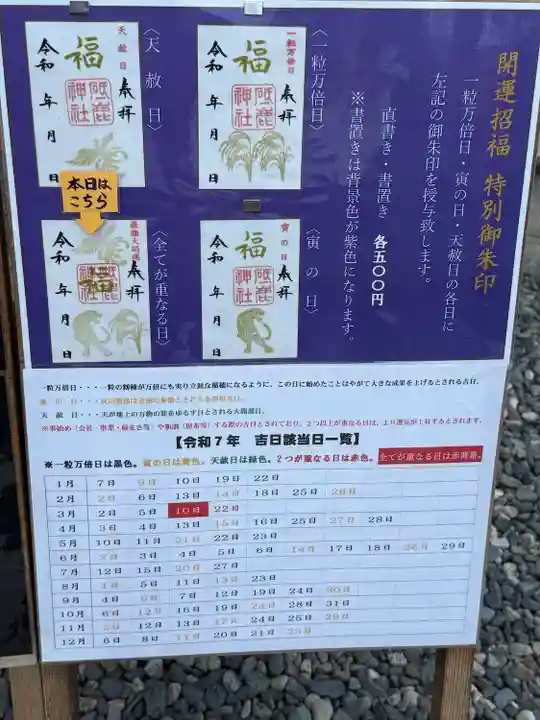 開運招福 特別御朱印
一粒万倍日・寅の日・天赦日の各日に
左記の御朱印を授与致します。
直書き・書置き 各五〇〇円
※書置きは背景色が紫色になります。
〈一粒万倍日〉
一粒万倍日
奉拝
福
砥鹿神社
令和 年 月 日
〈寅の日〉
寅の日
奉拝
福
砥鹿神社
令和 年 月 日
〈天赦日〉
天赦日
奉拝
福
砥鹿神社
令和 年 月 日
本日は
こちら
〈全てが重なる日〉
奉拝
令和 年 月 日
一粒万倍日・・・一粒の籾種が万倍にも実り立派な稲穂になるように、この日に始めたことはやがて大きな成果を上げるとされる吉日。
天 赦 日・・・天が地上の万物の罪をゆるす日とされる大開運日。
【令和7年 吉日該当日一覧】
※一粒万倍日は黒色。寅の日は黄色。天赦日は緑色。2つが重なる日は赤色。全てが重なる日は赤背景。
1月 7日 9日 10日 19日 22日
2月 2日 6日 13日 14日 18日 25日 26日
3月 2日 5日 10日 22日
4月 3日 4日 13日 15日 16日 25日 27日 28日
5月 10日 11日 21日 22日 23日
6月 2日 3日 4日 5日 6日 14日 17日 18日 26日 29日
7月 12日 15日 20日 27日
8月 1日 5日 11日 13日 23日
9月 4日 6日 7日 12日 19日 24日 30日
10月 6日 12日 16日 19日 24日 28日 31日
11月 5日 12日 13日 17日 24日 25日 29日
12月 6日 8日 11日 20日 21日 23日